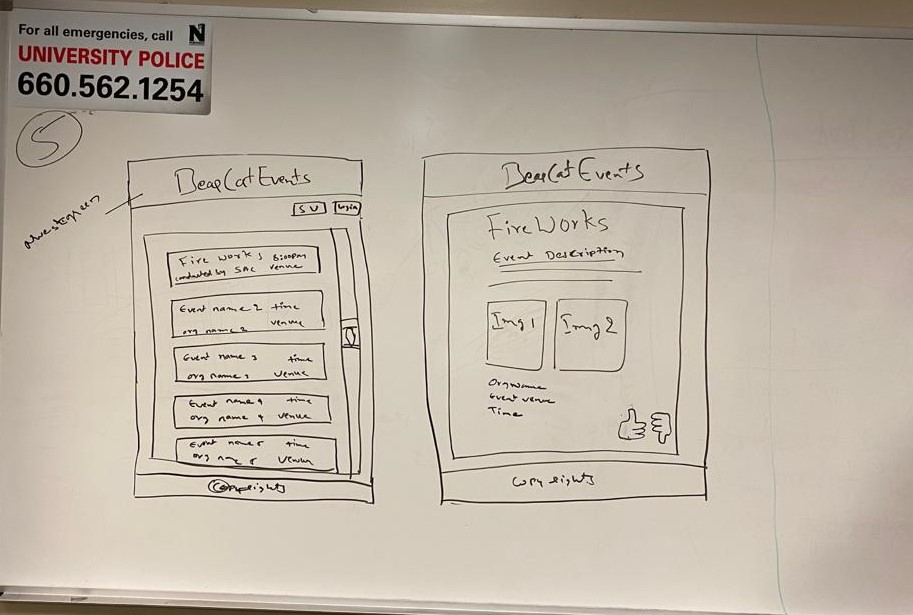 For all emergencies, call N
UNIVERSITY POLICE
660.562.1254
5
BearCatEvents
SU Login
Fire works 6:00pm
conducted by SAC venue
Event name 2 time
org name 2 venue
Event name 3 time
org name 3 venue
Event name 4 time
org name 4 venue
Event name 5 time
org name 5 venue
Copyrights
BearCat Events
FireWorks
Event Description
Img 1 Img 2
Org name
Event venue
Time
Copyrights